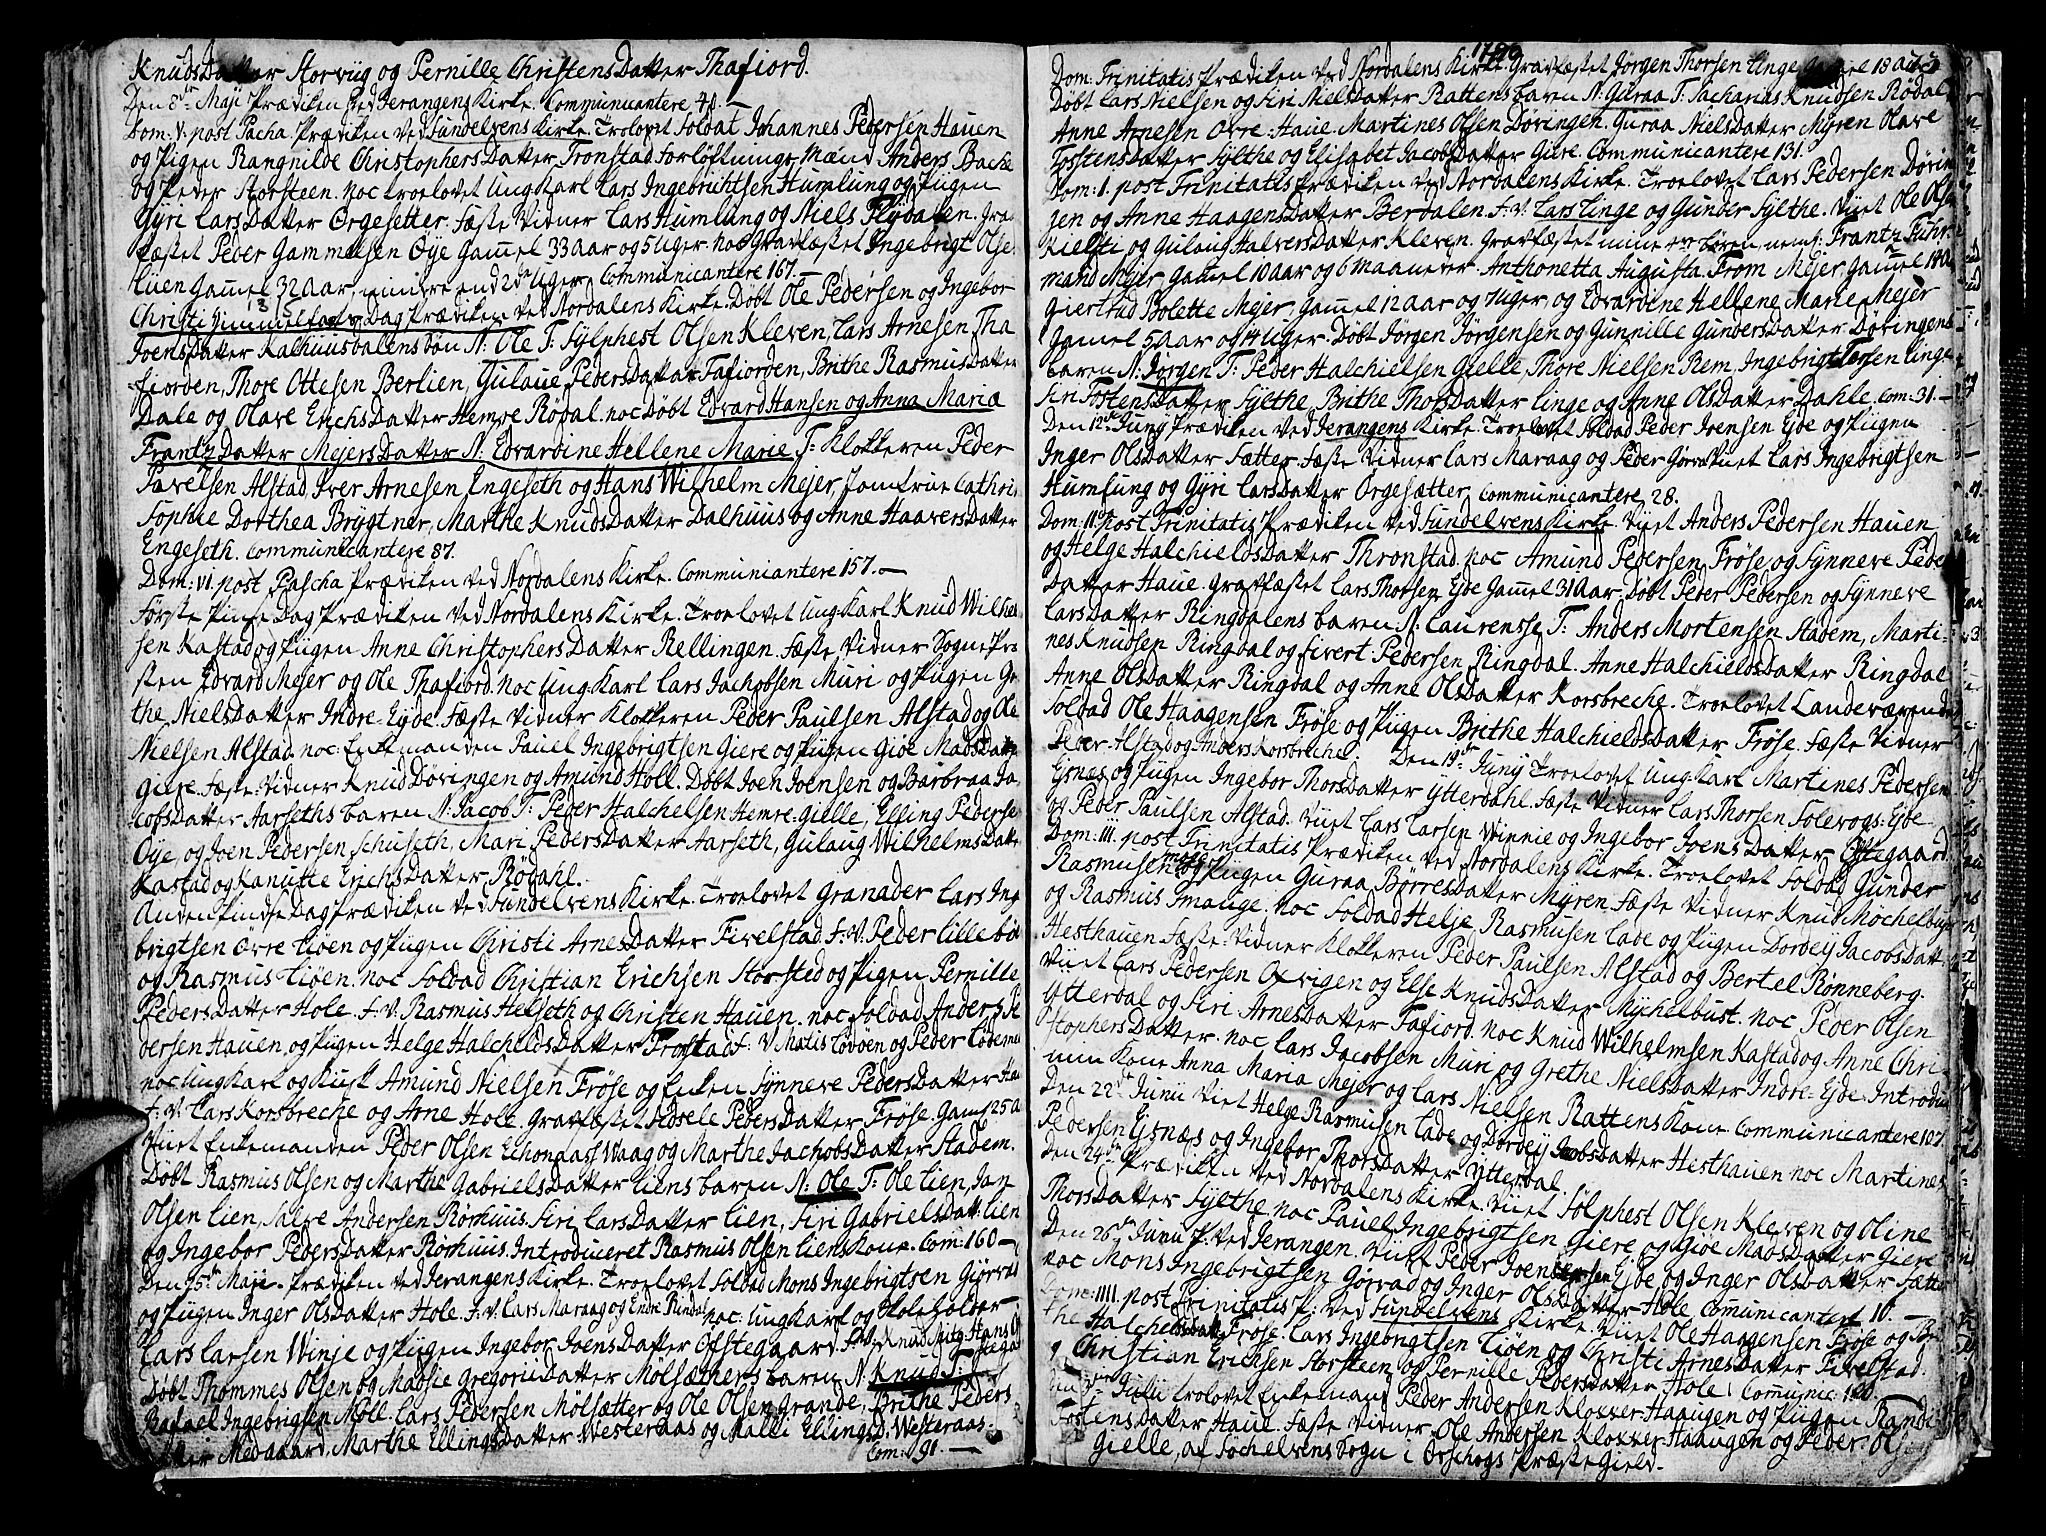 KnudsDatter Storviig og Pernille ChristensDatter Thafiord.
Den 8de Maji Prædiken ved Ierangens Kirke. Communicantere 40.
Dom: V. post Pacha. Prædiken ved Sundelvens Kirke. Troelovet Soldat Johannes Pedersen Hauen
og Pigen Rangnilde ChristophersDatter Tronstad Forlöftnings Mænd Anders Bache
og Peder Storsteen. noc troelovet Ung Karl Lars Ingebrichtsen Humlung og Pigen
Gyri LarsDatter Ørgesetter. Fæste Vidner Lars Humlung og Niels Flydalen. Gra-
fæstet Peder Gammelsen Øye Gamel 33 Aar og 5 Uger. noc Gravfæstet Ingebrigt Olse
Liien Gamel 32 Aar, mindre end 2de Uger. Communicantere 167.
Christi Himmelfarts Dag Prædiken ved Nordalens Kirke. Döbt Ole Pedersen og Ingebor
JoensDatter Kalhuusdalens Søn N: Ole T: Sylphest Olsen Kleven, Lars Arnesen Tha
fiorden, Thore Ottesen Berlien, Gulaue PedersDatter Tafiorden, Brithe RasmusDatter
Dale og Olave ErichsDatter Hemre Rödal. noc Döbt Edvard Hansen og Anna Maria
FrantzDatter Mejers Datter N: Edvardine Hellene Marie T: Klokkeren Peder
Pavelsen Alstad, Iver Arnesen Engeseth og Hans Wilhelm Mejer, Jomfrue Cathri
Sophie Dorthea Brygtner, Marthe KnudsDatter Dalhuus og Anne HaaversDatter
Engeseth. Communicantere 87.
Dom: VI. post Pascha Prædiken ved Nordalens Kirke. Communicantere 157.
Förste Pinse Dag Prædiken ved Nordalens Kirke. Troelovet Ung Karl Knud Wilhel
sen Kastad og Pigen Anne ChristophersDatter Rellingen. Fæste Vidner Sogne Præ
sten Edvard Mejer og Ole Thafiord. noc Ung Karl Lars Jachobsen Muri og Pigen Gre
the NielsDatter Indre-Eyde. Fæste Vidner Klokkeren Peder Paulsen Alstad og Ole
Nielsen Alstad. noc Enkemanden Pauel Ingebrigtsen Giere og Pigen Giöe MadsDatter
Giere. Fæste Vidner Knud Döringen og Amund Holl. Döbt Joen Joensen og Barbraa Ja
cobsDatter Aarseths baren N: Jacob T: Peder Halchelsen Hemre-Gielle, Elling Pederse
Øye, og Joen Pedersen Schuseth, Mari PedersDatter Aarseth, Gulaug WilhelmsDatter
Kastad og Kanutte ErichsDatter Rödahl.
Anden Pindse Dag Prædiken ved Sundelvens Kirke. Troelovet Granader Lars Inge
brigtsen Övre Liöen og Pigen Christi ArnesDatter Fivelstad. F: V: Peder Lilleböe
og Rasmus Liöen. noc Soldad Christian Erichsen Storsted og Pigen Pernille
PedersDatter Hole. F: V: Rasmus Helseth og Christen Hauen. noc Soldad Anders Pe
dersen Hauen, og Pigen Helge HalcheldsDatter Tronstad. F: V: Matis Lödöen og Peder Lödem
noc Ung Karl og Kusk Amund Nielsen Fröse og Enken Synneve PedersDatter Hau
F: V: Lars Korsbreche og Arne Hole. Gravfæstet Adsele PedersDatter Fröse. Gaml 25 A
Viiet Enkemanden Peder Olsen Echonaass Waag og Marthe JachobsDatter Stadem.
Döbt Rasmus Olsen og Marthe GabrielsDatter Liens baren N: Ole T: Ole Lien, Jan
Olsen Lien, Salve Andersen Rörhuus. Siri LarsDatter Lien, Siri GabrielsDatt: Lien
og Ingebor PedersDatter Rörhuus. Introduceret Rasmus Olsen Liens Kone. Com: 160
Den 15de Maji Prædiken ved Ierangens Kirke. Troelovet Soldad Mons Ingebrigtsen Gjörvad
og Pigen Inger OlsDatter Hole. F: V: Lars Maraag og Endre Rindal. noc: Ung Karl og Skoleholder
Lars Larsen Winje og Pigen Ingebor JoensDatter Ofstegaard.
Döbt Thommes Olsen og Madsie GregoriiDatter Mölsæthers baren N: Knud T:
Rafael Ingebrigsen Möll. Lars Pedersen Mölsætter og Ole Olsen Grande, Brithe Peders
Medgaard, Marthe EllingsDatter Westeraas og Malli Ellings D: Westeraas.
Com: 91.
Dom: Trinitatis Prædiken ved Nordalens Kirke. Gravfæstet Jörgen Thorsen Linge Gamel 18 a
Döbt Lars Nielsen og Siri NielsDatter Rattens baren N: Guraa T: Sacharias Knudsen Rödal
Anne Arnesen Ovre-Haue. Martines Olsen Döringen. Guraa NielsDatter Myren Olave
TostensDatter Sylthe og Elisabet JacobsDatter Giere. Communicantere 131.
Dom: I. post Trinitatis Prædiken ved Nordalens Kirke. Troelovet Lars Pedersen Dörin
gen og Anne HaagensDatter Berdalen. F. V. Lars Linge og Gunder Sylthe. Viiet Ole Olsen
Kielst og Gulaug HalversDatter Kleven. Gravfæstet mine Börn neml: Frantz Fuhr
mand Mejer Gamel 10 Aar og 6 Maaneder. Anthonetta Augusta From Mejer, Gamel
Giertrud Bolette Mejer, Gamel 12 aar og 7 Uger og Edvardine Hellene Marie Mejer
Gamel 5 Aar og 14 Uger. Döbt Jörgen Jörgensen og Gunnille GundersDatter Döringens
baren N: Jörgen T: Peder Halchielsen Gielle, Thore Nielsen Rem, Ingebrigt Torsen Linge
Siri TostensDatter Sylthe Brithe ThorsDatter Linge og Anne OlsDatter Dahle. Com: 31.
Den 12de Juny Prædiken ved Ierangens Kirke. Troelovet Soldad Peder Joensen Eyde og Pigen
Inger OlsDatter Sætter. Fæste Vidner Lars Maraag og Peder Gjörva. Viiet Lars Ingebrigtsen
Humlung og Gyri LarsDatter Orgesætter. Communicantere 28.
Dom: II. post Trinitatis Prædiken ved Sundelvens Kirke. Viiet Anders Pedersen Hauen
og Helge HalchieldsDatter Thronstad. noc Amund Pedersen Fröse og Synneve Peders
Datter Haue. Gravfæstet Lars Thorsen Eyde Gamel 31 Aar. Döbt Peder Pedersen og Synneve
LarsDatter Ringdalens baren N: Laurensse T: Anders Mortensen Stadem, Marti-
nes Knudsen Ringdal og Sivert Pedersen Ringdal. Anne HalchieldsDatter Ringdal
Anne OlsDatter Ringdal og Anne OlsDatter Korsbreche. Troelovet Landeværende
Soldad Ole Haagensen Fröse og Pigen Brithe HalchieldsDatter Fröse. Fæste Vidner
Peder Alstad og Anders Korsbreche. Den 19de Juny Troelovet Ung Karl Martines Pedersen
Eysnes og Pigen Ingebor ThorsDatter Ytterdahl. Fæste Vidner Lars Thorsen Solevogs-Eyde
og Peder Paulsen Alstad. Viiet Lars Larsen Winnie og Ingebor JoensDatter Ofstegaard.
Dom: III. post Trinitatis Prædiken ved Nordalens Kirke. Troelovet Soldad Gunder
Rasmusen og Pigen Guraa BörresDatter Myren. Fæste Vidner Knud Mochelbust
og Rasmus Smauge. noc Soldad Helje Rasmusen Lade og Pigen Dordey JacobsDatt
Hesthauen Fæste-Vidner Klokkeren Peder Paulsen Alstad og Bertel Rönneberg.
Viiet Lars Pedersen Ovrigen og Else KnudsDatter Mychelbust. noc Peder Olsen
Ytterdal og Siri ArnesDatter Tafiord. noc Knud Wilhelmsen Kastad og Anne Chri-
stophersDatter. noc Lars Jacobsen Muri og Grethe NielsDatter Indre-Eyde. Introdu
min Kone Anna Maria Mejer og Lars Nielsen Rattens Kone. Communicantere 107.
Den 22de Junii Viet Helge Rasmusen Lade og Dordey JacobsDatter Hesthauen noc Martines
Pedersen Eysnæs og Ingebor ThorsDatter Ytterdal.
Den 24de Prædiken ved Nordalens Kirke. Viiet Sölphest Olsen Kleven og Oline
ThorsDatter Sylthe noc Pauel Ingebrigtsen Giere og Giöe MadsDatter Giere
Den 26de Junii P: ved Ierangen. Viiet Peder Joensen Eyde og Inger OlsDatter Sætter
noc Mons Ingebrigtsen Görvad og Inger OlsDatter Hole Comunicantere 10.
Dom: IIII. post Trinitatis P: ved Sundelvens Kirke. Viiet Ole Haagensen Fröse og Bri
the Fröse. Lars Ingebrigtsen Liöen og Christi ArnesDatter Fivelstad.
Christian Erichsen Storsteen og Pernille PedersDatter Hole. Comunic: 180.
Julii trolovet Enkemand Peder Andersen Klokker-Haaugen og Pigen Randi
TostensDatter Haue. Fæste Vidner Ole Andersen Klokker-Haaugen og Peder Olse
Gielle, af Sochelvens Sogn i Ørschogs Præstegield.